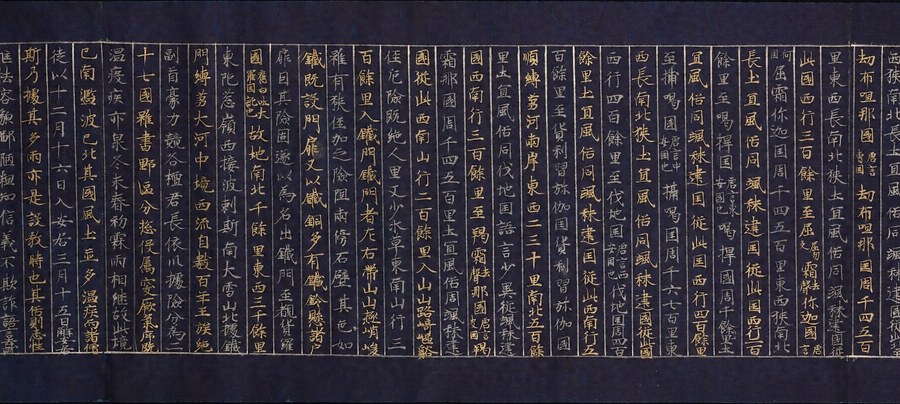 西狹南北長土宜風俗同颯秣建
劫布呾那國 唐言曹國 劫布呾那國周千四五百
里東西長南北狹土宜風俗同颯秣建國從
此國西行三百餘里至屈 霜 你迦國 唐言
何國 屈霜你迦国周千四五百里東西狹南北
長土宜風俗同颯秣建國從此國西行二百
餘里至喝捍國 唐言東安國也 喝捍國周千餘里土
宜風俗同颯秣建国從此国西行四百餘里
至捕喝國 唐言中安国也 捕喝國周千六七百里東
西長南北狹土宜風俗同颯秣建國從此國
西行四百餘里至伐地国 唐言西安国也 伐地國周四百
餘里土宜風俗同颯秣建国從此西南行五
百餘里至貨利習弥伽国貨利習弥伽国
順縛芻河兩岸東西二三十里南北五百餘
里土宜風俗同伐地国語言少異從颯秣建
國西南行三百餘里至羯霜 那國 唐言史国 羯
霜那國周千四五百里土宜風俗同颯秣建
國從此西南行二百餘里入山山路崎嶇谿
径危險既絶人里又少水草東南山行三
百餘里入鐵門鐵門者左右帶山山極峭峻
雖有狹徑加之險阻兩傍石壁其色如
鐵既設門扉又以鐵錮多有鐵鈴懸諸户
扉因其險固遂以為名出鐵門至覩貨羅
國 故地南北千餘里東西三千餘里
東阨葱嶺西接波剌斯南大雪山北據鐵
門縛芻大河中境西流自數百年王族絶
嗣酋豪力競各擅君長依川據險分為二
十七國雖畫野區分捴役属突厥氣序既
温疾疫亦衆冬末春初霖雨相継故此境
已南濫波已北其國風土並多温疾而諸僧
徒以十二月十六日入安右三月十五日解安居
斯乃據其多雨亦是設教時也其俗則志性
恇怯容貌鄙陋粗知信義不欺詐